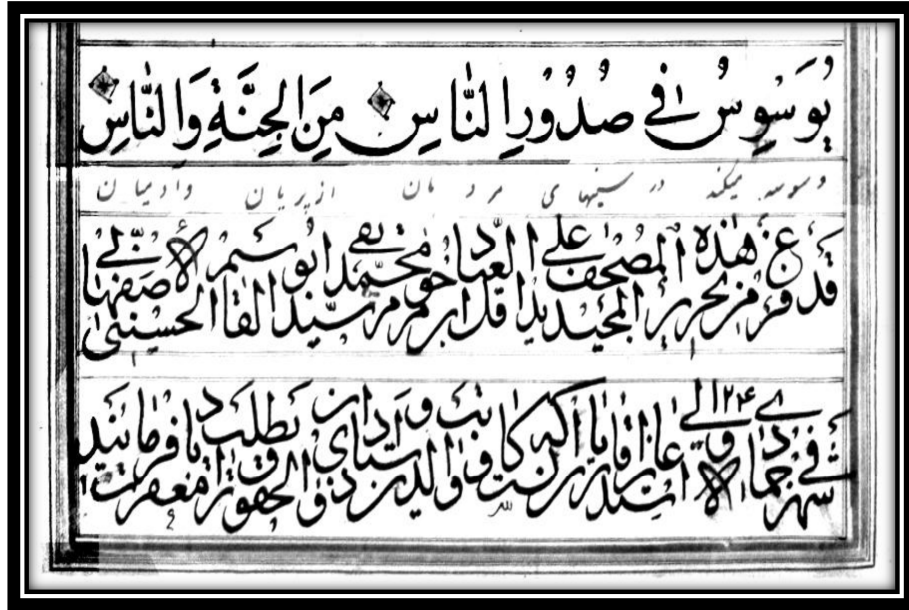 يُوَسْوِسُ فِي صُدُوْرِ النَّاسِ مِنَ الْجِنَّةِ وَالنَّاسِ
وسوسه میکند در سینهای مردمان از پریان وآدمیان
قد فرغ من تحرير هذه المصحف المجيد علی ید اقل العباد محمد تقی ابوالقاسم الحسینی الاصفهانی
فی شهر جمادی ۱۲۴ استدعا از قاریان آنکه کاتب و والدین ذوی الحقوق را طلب مغفرت فرمایند